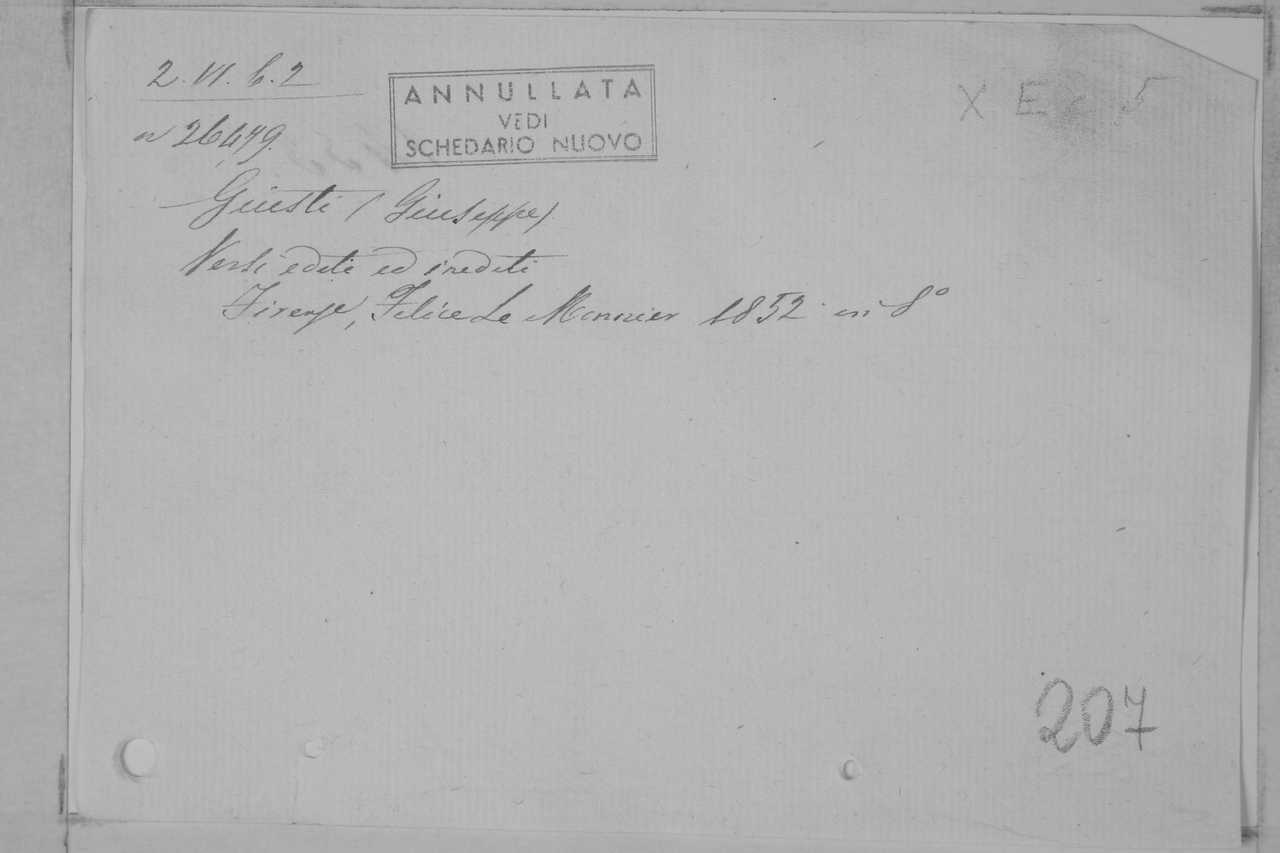 2. VI. 6. 2
ANNULLATA
VEDI
SCHEDARIO NUOVO
X E 5
n 26479.
Giusti (Giuseppe)
Versi editi ed inediti
Firenze, Felice Le Monnier 1852 in 8°
207